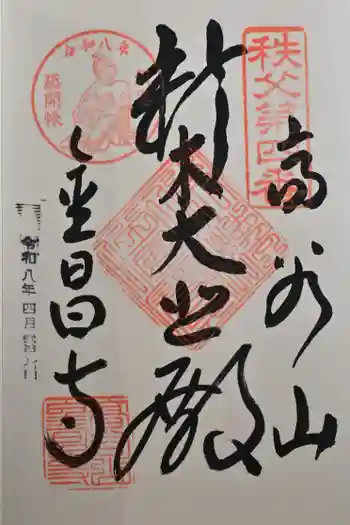 秩父第四番
高谷山
新木大悲殿
総開帳
金昌寺
令和八年四月